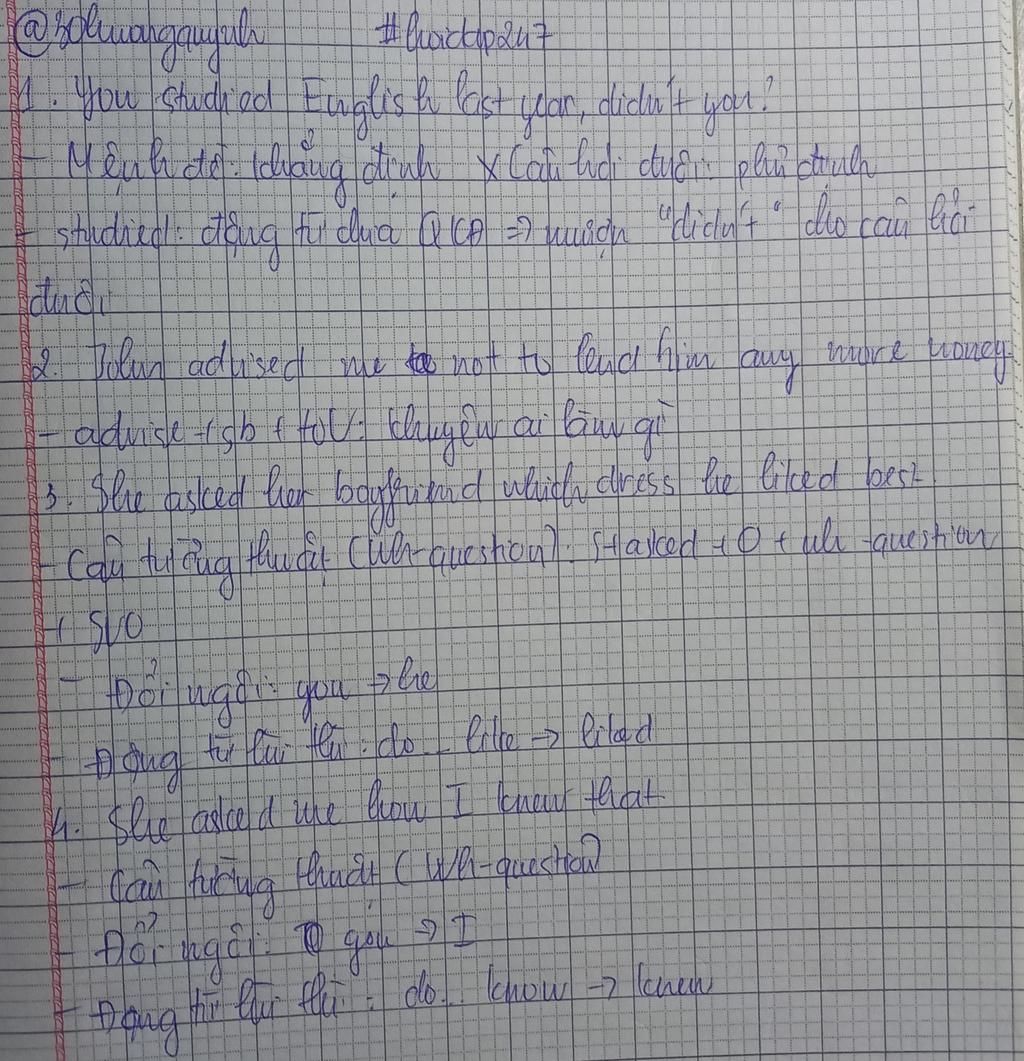 #hoidap247
1. You studied English last year, didn't you?
- Mệnh đề: khẳng định x Câu hỏi đuôi: phủ định
- studied: động từ chia QKĐ => mượn "didn't" cho câu hỏi
đuôi
2. John advised me not to lend him any more money
- advise + sb + to V: khuyên ai làm gì
3. She asked her boyfriend which dress he liked best
- Câu tường thuật (Wh-question): S + asked + O + wh-question
+ SVO
- Đổi ngôi: you → he
- Động từ lùi thì: do.. like → liked
4. She asked me how I knew that
- Câu tường thuật (Wh-question)
- Đổi ngôi: you => I
- Động từ lùi thì: do.. know → knew